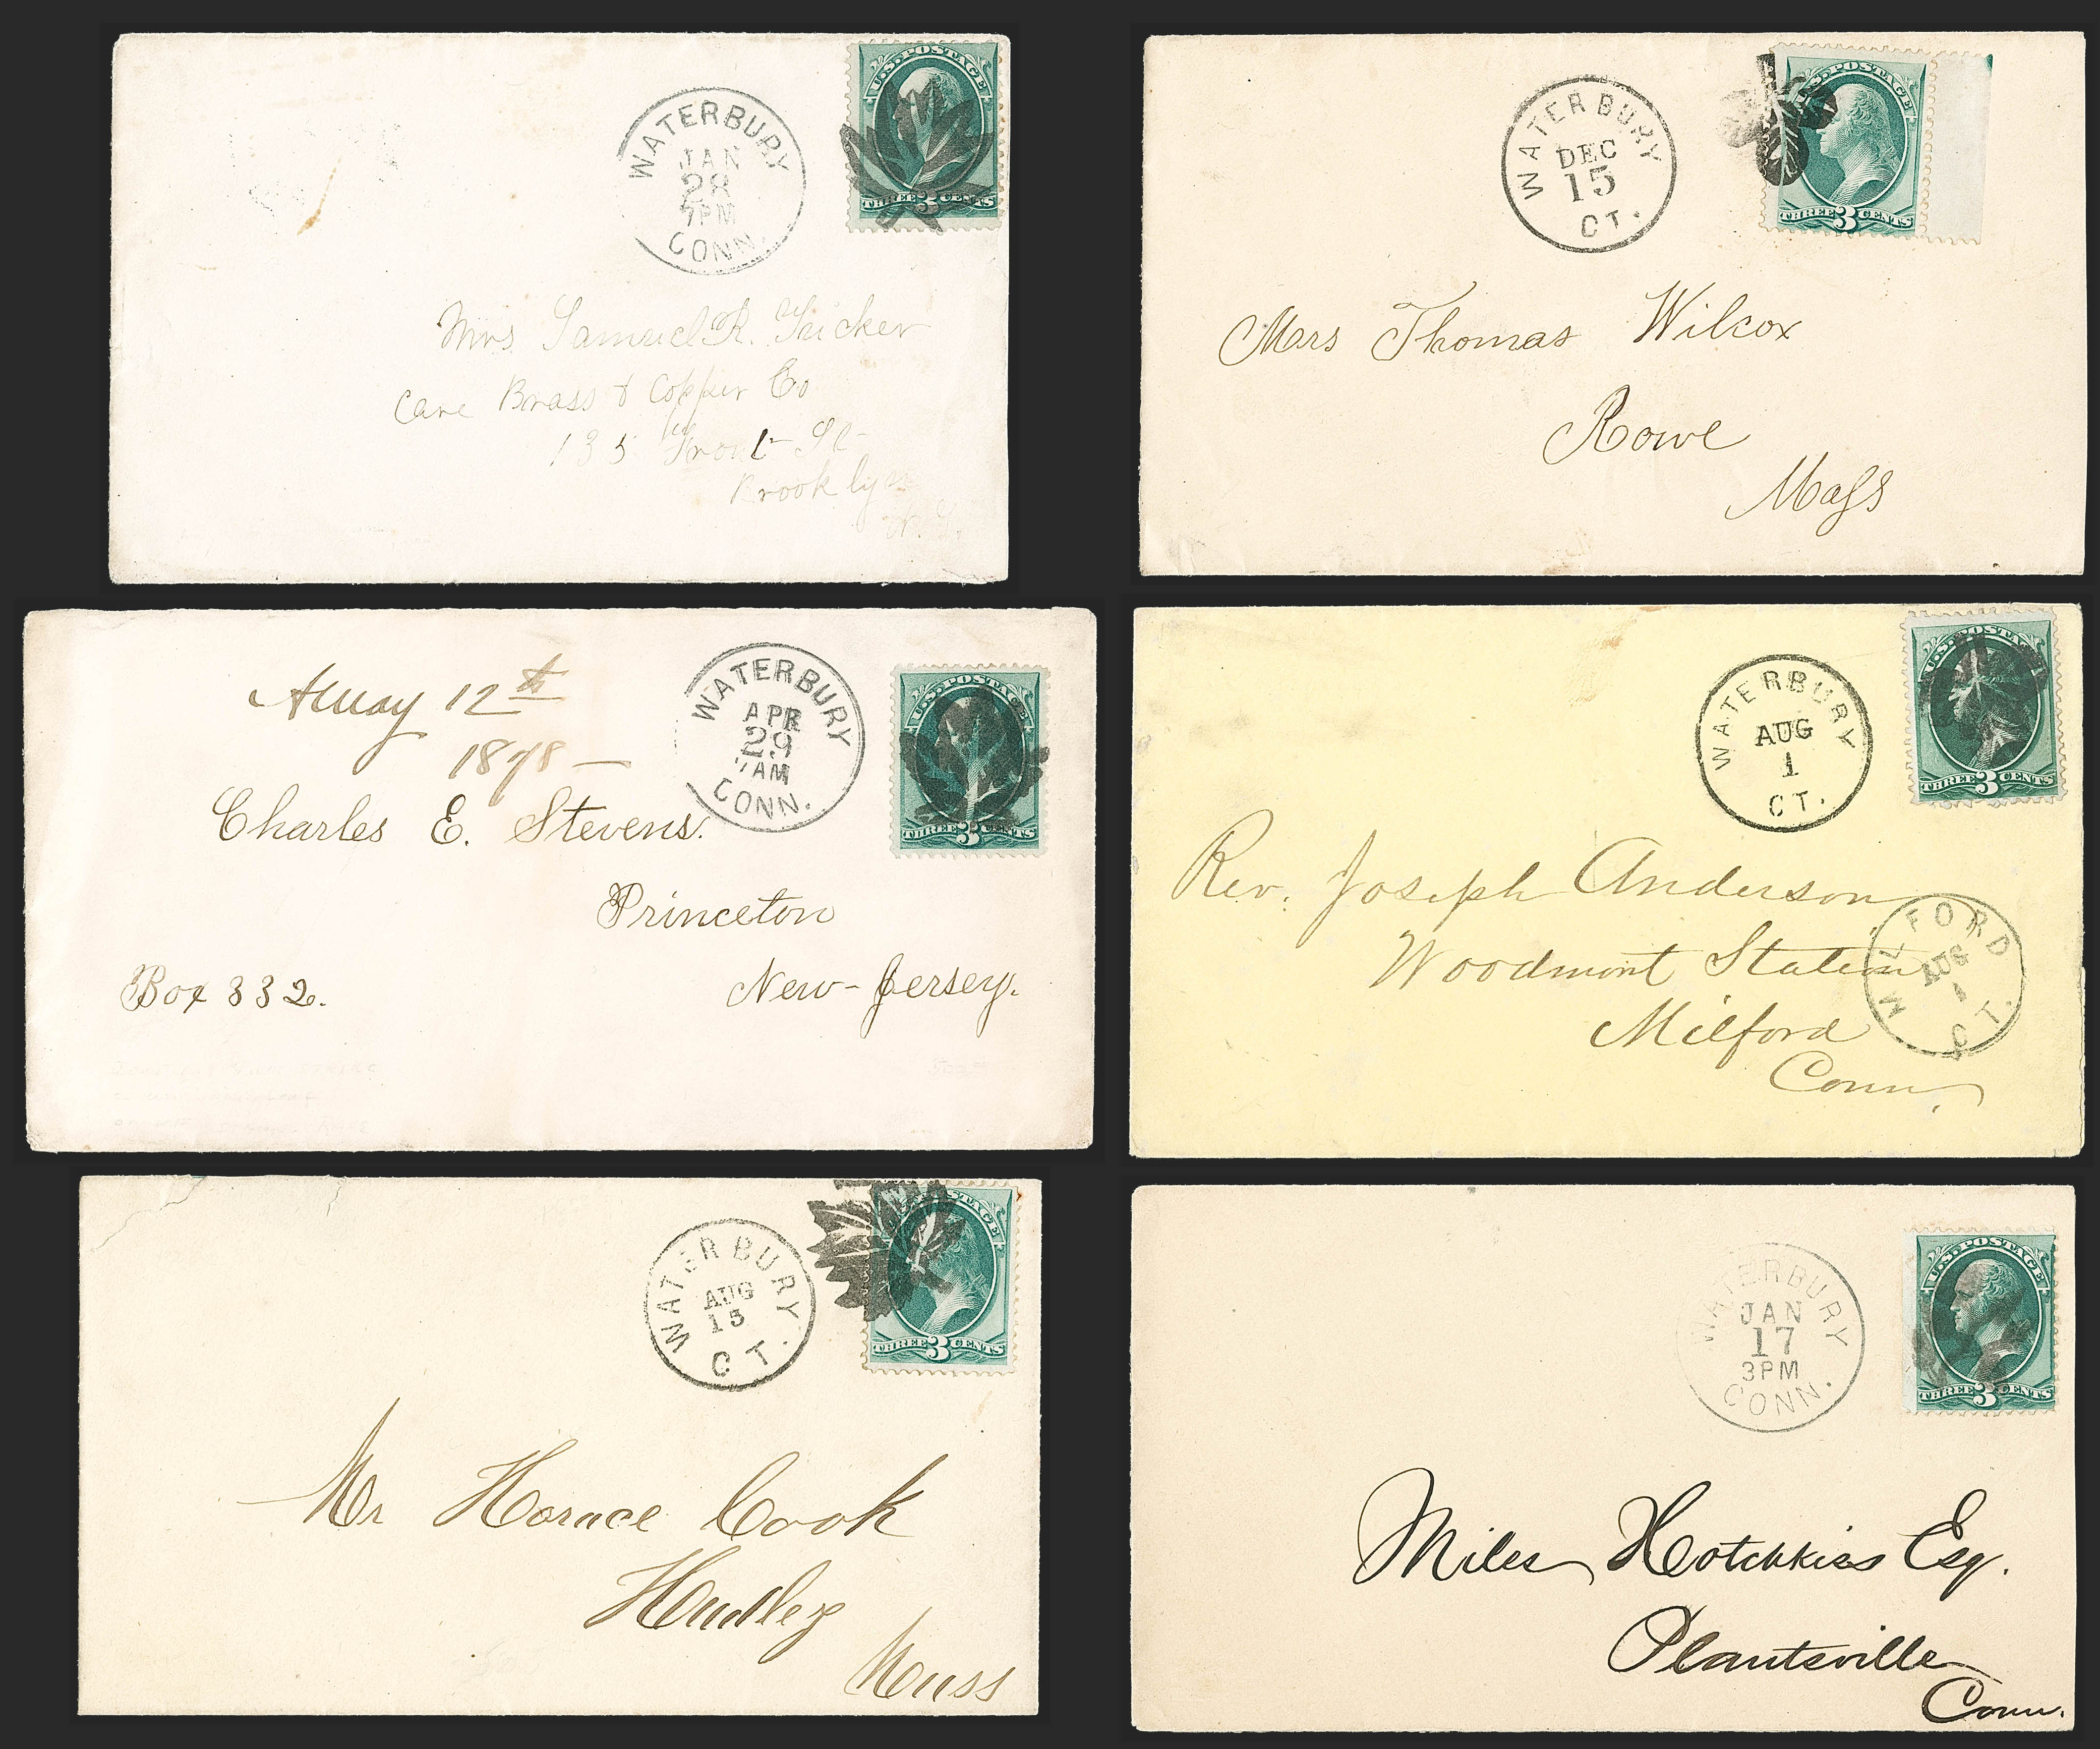 WATERBURY
JAN
28
7PM
CONN.
U.S. POSTAGE
THREE 3 CENTS
Mrs Samuel R. Tucker
Care Brass & Copper Co
135 Front St
Brooklyn
N.Y.
WATERBURY
DEC
15
CT.
U.S. POSTAGE
THREE 3 CENTS
Mrs Thomas Wilcox
Rowe
Mass
May 12th
1878 —
WATERBURY
APR
29
7AM
CONN.
U.S. POSTAGE
THREE 3 CENTS
Charles E. Stevens.
Princeton
Box 332.
New-Jersey.
WATERBURY
AUG
1
CT.
U.S. POSTAGE
THREE 3 CENTS
Rev. Joseph Anderson,
Woodmont Station
Milford
Conn.
MILFORD
AUG
1
CT.
WATERBURY
AUG
15
CT.
POSTAGE
THREE 3 CENTS
Mr Horace Cook
Hadley
Mass
WATERBURY
JAN
17
3PM
CONN.
U.S. POSTAGE
THREE 3 CENTS
Miles Hotchkiss Esq.
Plantsville
Conn.